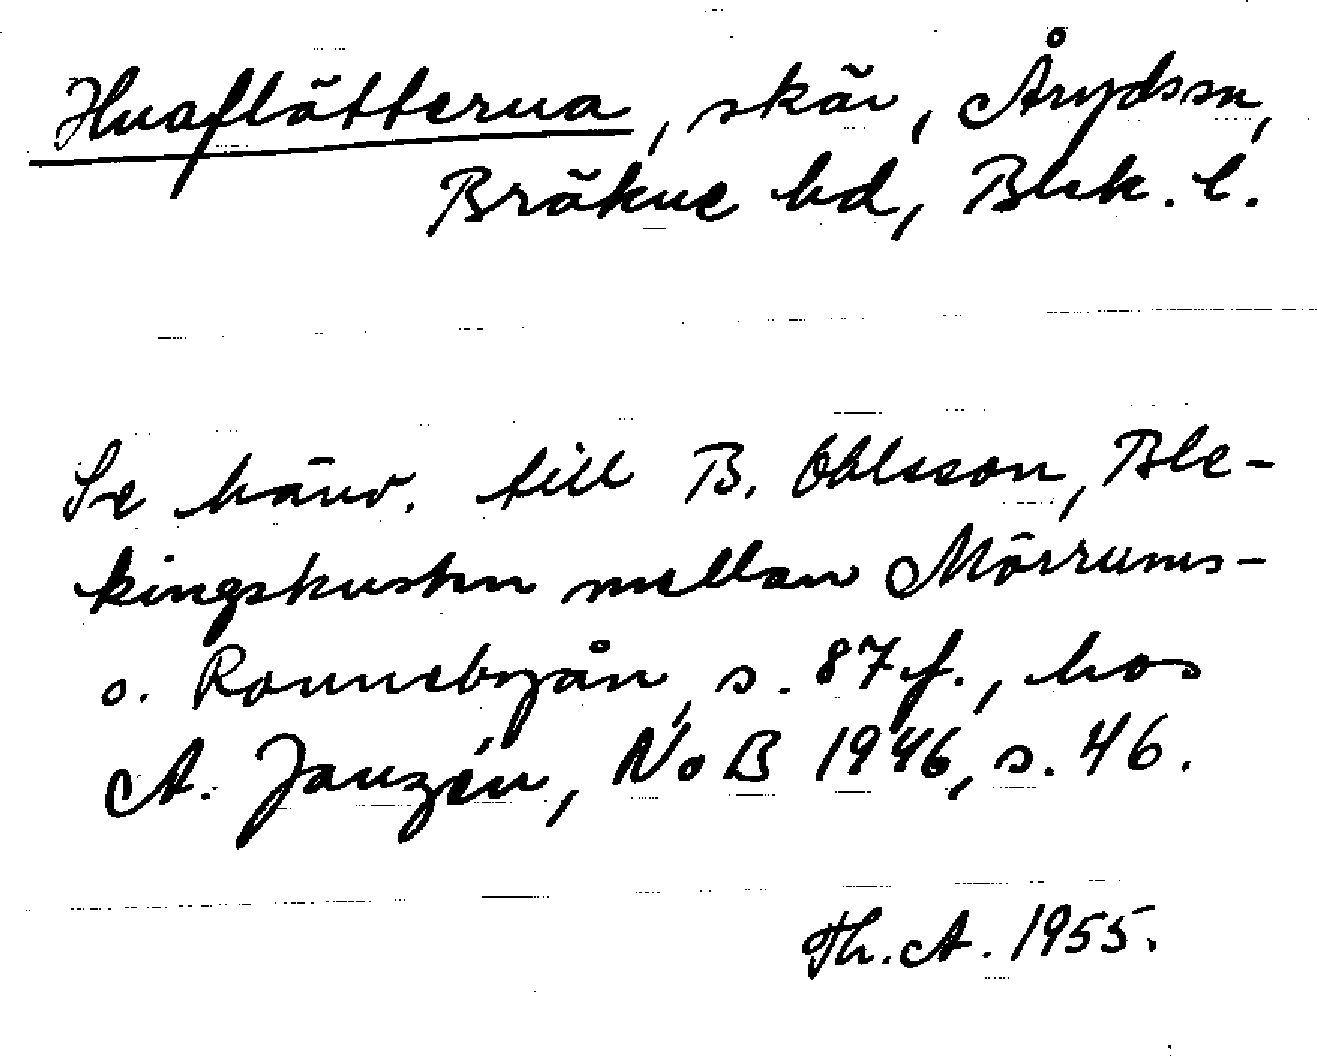 Huaflätterna, skär, Årydssn,
Bräkne hd, Blek. l.
Se hänv. till B. Ohlsson, Ble-
kingskusten mellan Mörrums-
o. Ronnebyån, s. 87 f., hos
A. Janzén, NoB 1946, s. 46.
Th. A. 1955.